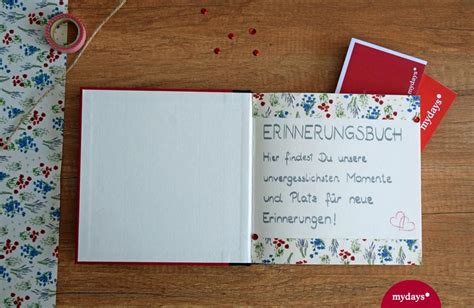 mydays
mydays
ERINNERUNGSBUCH
Hier findest Du unsere
unvergesslichsten Momente
und Platz für neue
Erinnerungen!
mydays